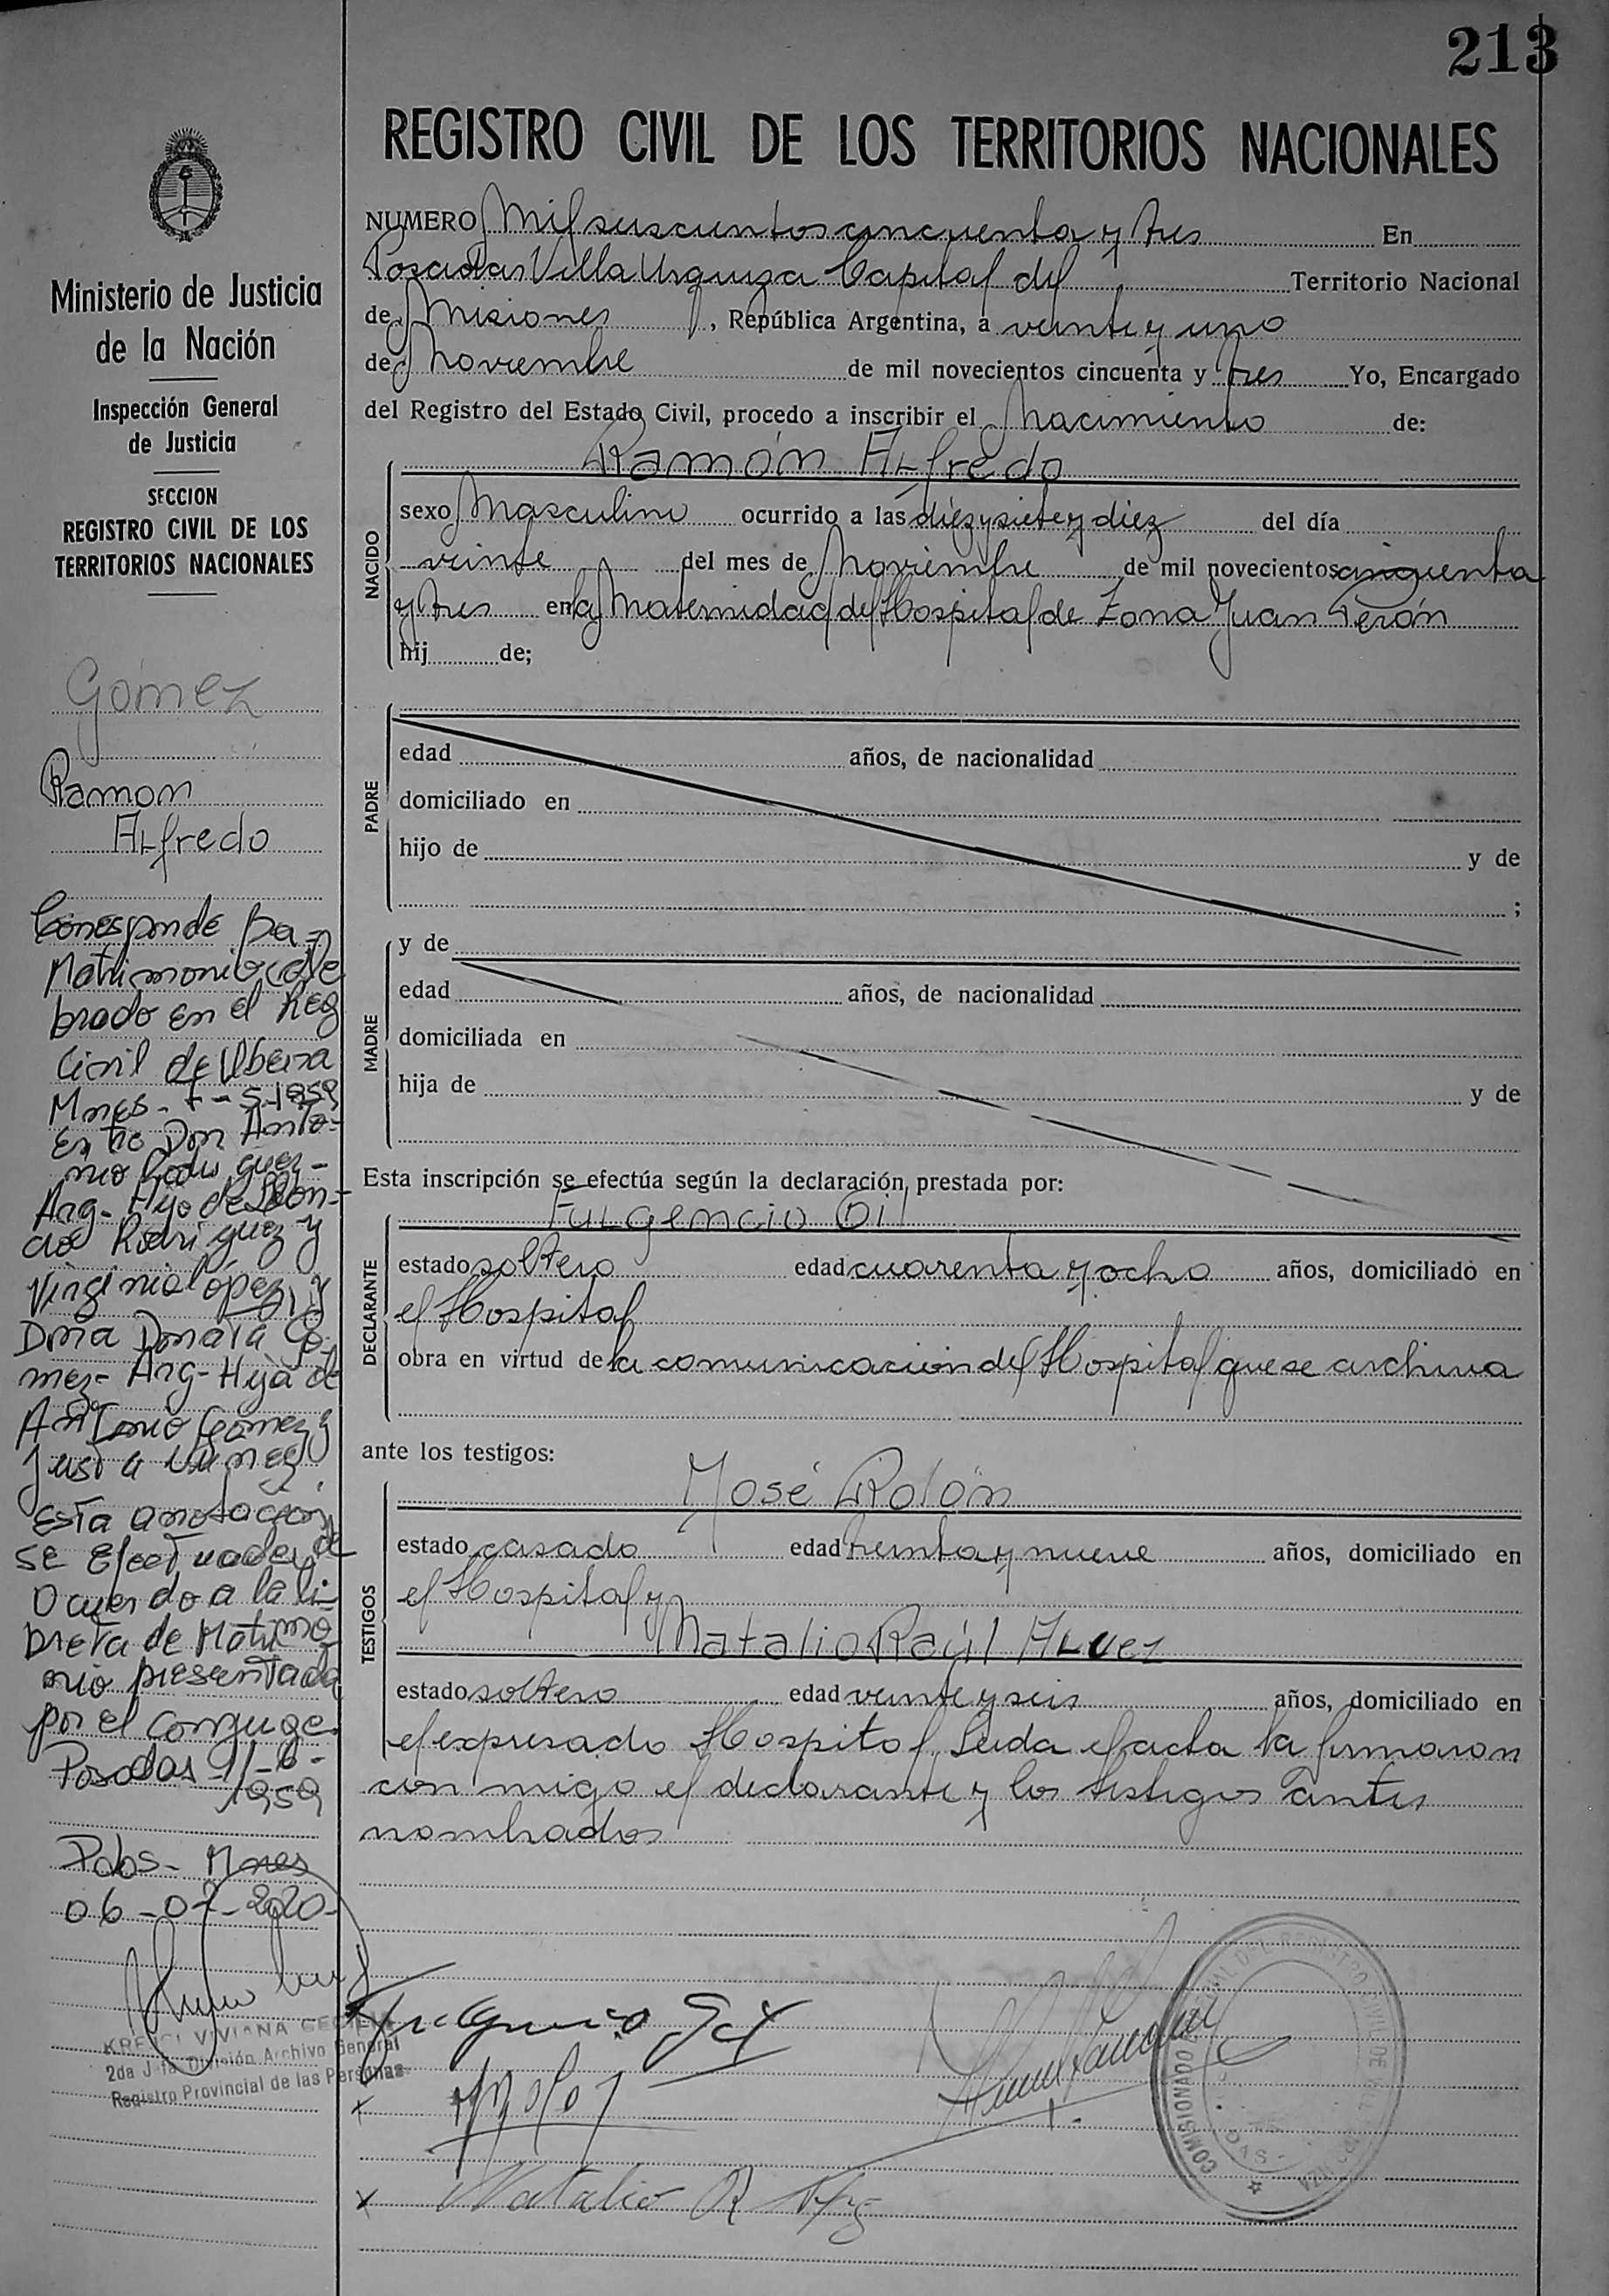 213
REGISTRO CIVIL DE LOS TERRITORIOS NACIONALES
Ministerio de Justicia
de la Nación
Inspección General
de Justicia
SECCION
REGISTRO CIVIL DE LOS
TERRITORIOS NACIONALES
Gómez
Ramon
Alfredo
Corresponde
Matrimonio cele
brado en el Reg
Civil de Obera
Mnes - 5-1959
Entre Don Anto-
nio Rodriguez -
Arg- Hijo de
Rodriguez y
Virginia López, y
Dna Donata Gó-
mez- Arg- Hija de
Antonio Gómez y
Justa
Esta anotación
se Efectua de
acuerdo a la li-
breta de Matrimo
nio presentada
por el Conyuge.
Posadas 11-6-
1959
Pdas- Mnes
06-07-2020-
VIVIANA
2da División Archivo General
Registro Provincial de las Personas
NUMERO Mil seiscientos cincuenta y tres En
Posadas Villa Urquiza Capital del Territorio Nacional
de Misiones, República Argentina, a veinte y uno
de Noviembre de mil novecientos cincuenta y tres Yo, Encargado
del Registro del Estado Civil, procedo a inscribir el Nacimiento de:
NACIDO
Ramón Alfredo
sexo Masculino ocurrido a las diez y siete y diez del día
veinte del mes de Noviembre de mil novecientos cinquenta
y tres en la Maternidad del Hospital de Zona Juan Perón
hij de;
PADRE
edad años, de nacionalidad
domiciliado en
hijo de y de
;
MADRE
y de
edad años, de nacionalidad
domiciliada en
hija de y de
Esta inscripción se efectúa según la declaración prestada por:
DECLARANTE
Fulgencio Gil
estado soltero edad cuarenta y ocho años, domiciliado en
el Hospital
obra en virtud de la comunicación del Hospital que se archiva
ante los testigos:
TESTIGOS
José Rolón
estado casado edad treinta y nueve años, domiciliado en
el Hospital y
Natalio Raúl Alvez
estado soltero edad veinte y seis años, domiciliado en
el expresado Hospital. Leida el acta la firmaron
con migo el declarante y los testigos antes
nombrados
Fulgencio Gil
Natalio R
COMISIONADO